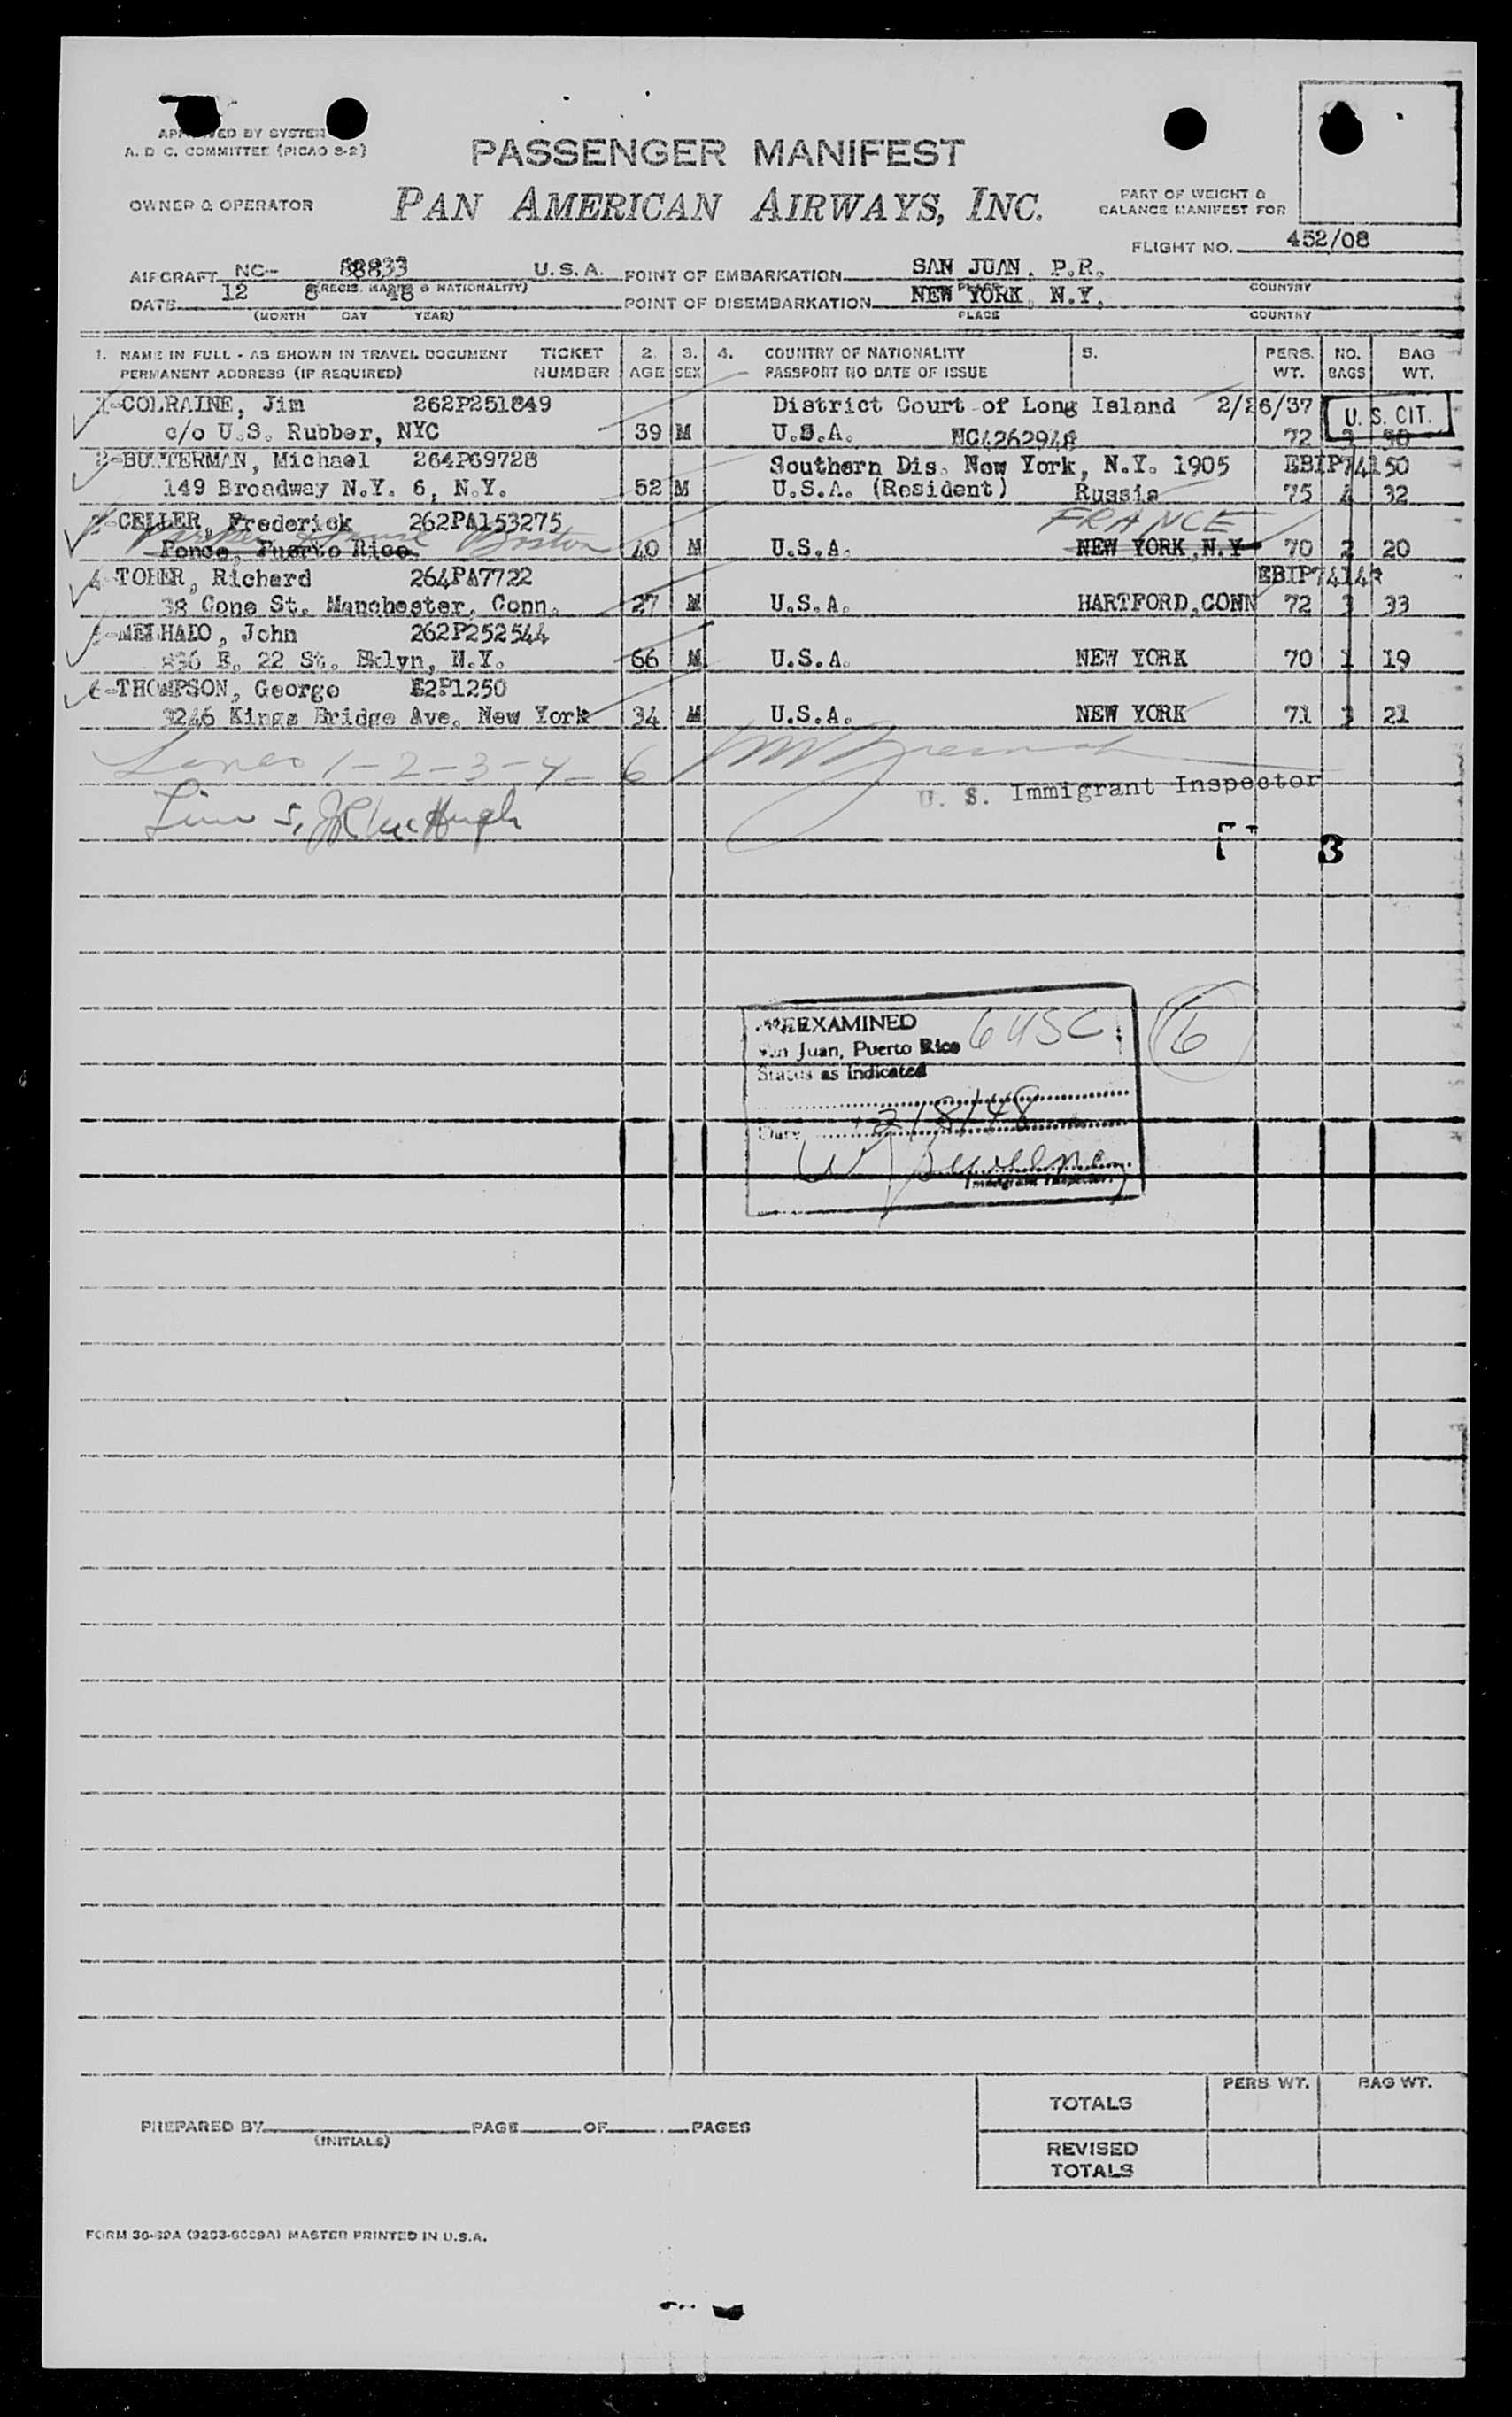 APPROVED BY SYSTEM
A. D C. COMMITTEE (PICAO S-2)
PASSENGER MANIFEST
OWNER & OPERATOR
PAN AMERICAN AIRWAYS, INC.
PART OF WEIGHT &
BALANCE MANIFEST FOR
FLIGHT NO. 452/08
AIRCRAFT NC- 88833 U.S.A. POINT OF EMBARKATION SAN JUAN, P.R.
(REGIS. MARKS & NATIONALITY) PLACE COUNTRY
DATE 12 8 48 POINT OF DISEMBARKATION NEW YORK, N.Y.
(MONTH DAY YEAR) PLACE COUNTRY
1. NAME IN FULL - AS SHOWN IN TRAVEL DOCUMENT TICKET 2. 3. 4. COUNTRY OF NATIONALITY 5. PERS. NO. BAG
PERMANENT ADDRESS (IF REQUIRED) NUMBER AGE SEX PASSPORT NO DATE OF ISSUE WT. BAGS WT.
1-COLRAINE, Jim 262P251849 District Court of Long Island 2/26/37 U.S. CIT.
c/o U.S. Rubber, NYC 39 M U.S.A. NC4262948 72
2-BUTTERMAN, Michael 264P69728 Southern Dis. New York, N.Y. 1905 EBIP74150
149 Broadway N.Y. 6, N.Y. 52 M U.S.A. (Resident) Russia 75 4 32
3-CELLER, Frederick 262PA153275 FRANCE
Parker House Boston
Ponce, Puerto Rico 40 M U.S.A. NEW YORK, N.Y 70 2 20
4-TOBER, Richard 264PA7722 EBIP74143
38 Cone St. Manchester, Conn. 27 M U.S.A. HARTFORD, CONN 72 3 33
5-MELHADO, John 262P252544
836 E. 22 St. Bklyn, N.Y. 66 M U.S.A. NEW YORK 70 1 19
6-THOMPSON, George E2P1250
3246 Kings Bridge Ave. New York 34 M U.S.A. NEW YORK 71 3 21
Lines 1-2-3-4-6
U. S. Immigrant Inspector
Line 5, J McHugh
3
PREEXAMINED 6 USC 6
San Juan, Puerto Rico
Status as indicated
Date 12/8/48
Immigrant Inspector
PERS. WT. BAG WT.
TOTALS
PREPARED BY PAGE OF PAGES
(INITIALS)
REVISED
TOTALS
FORM 36-69A (9253-6069A) MASTER PRINTED IN U.S.A.